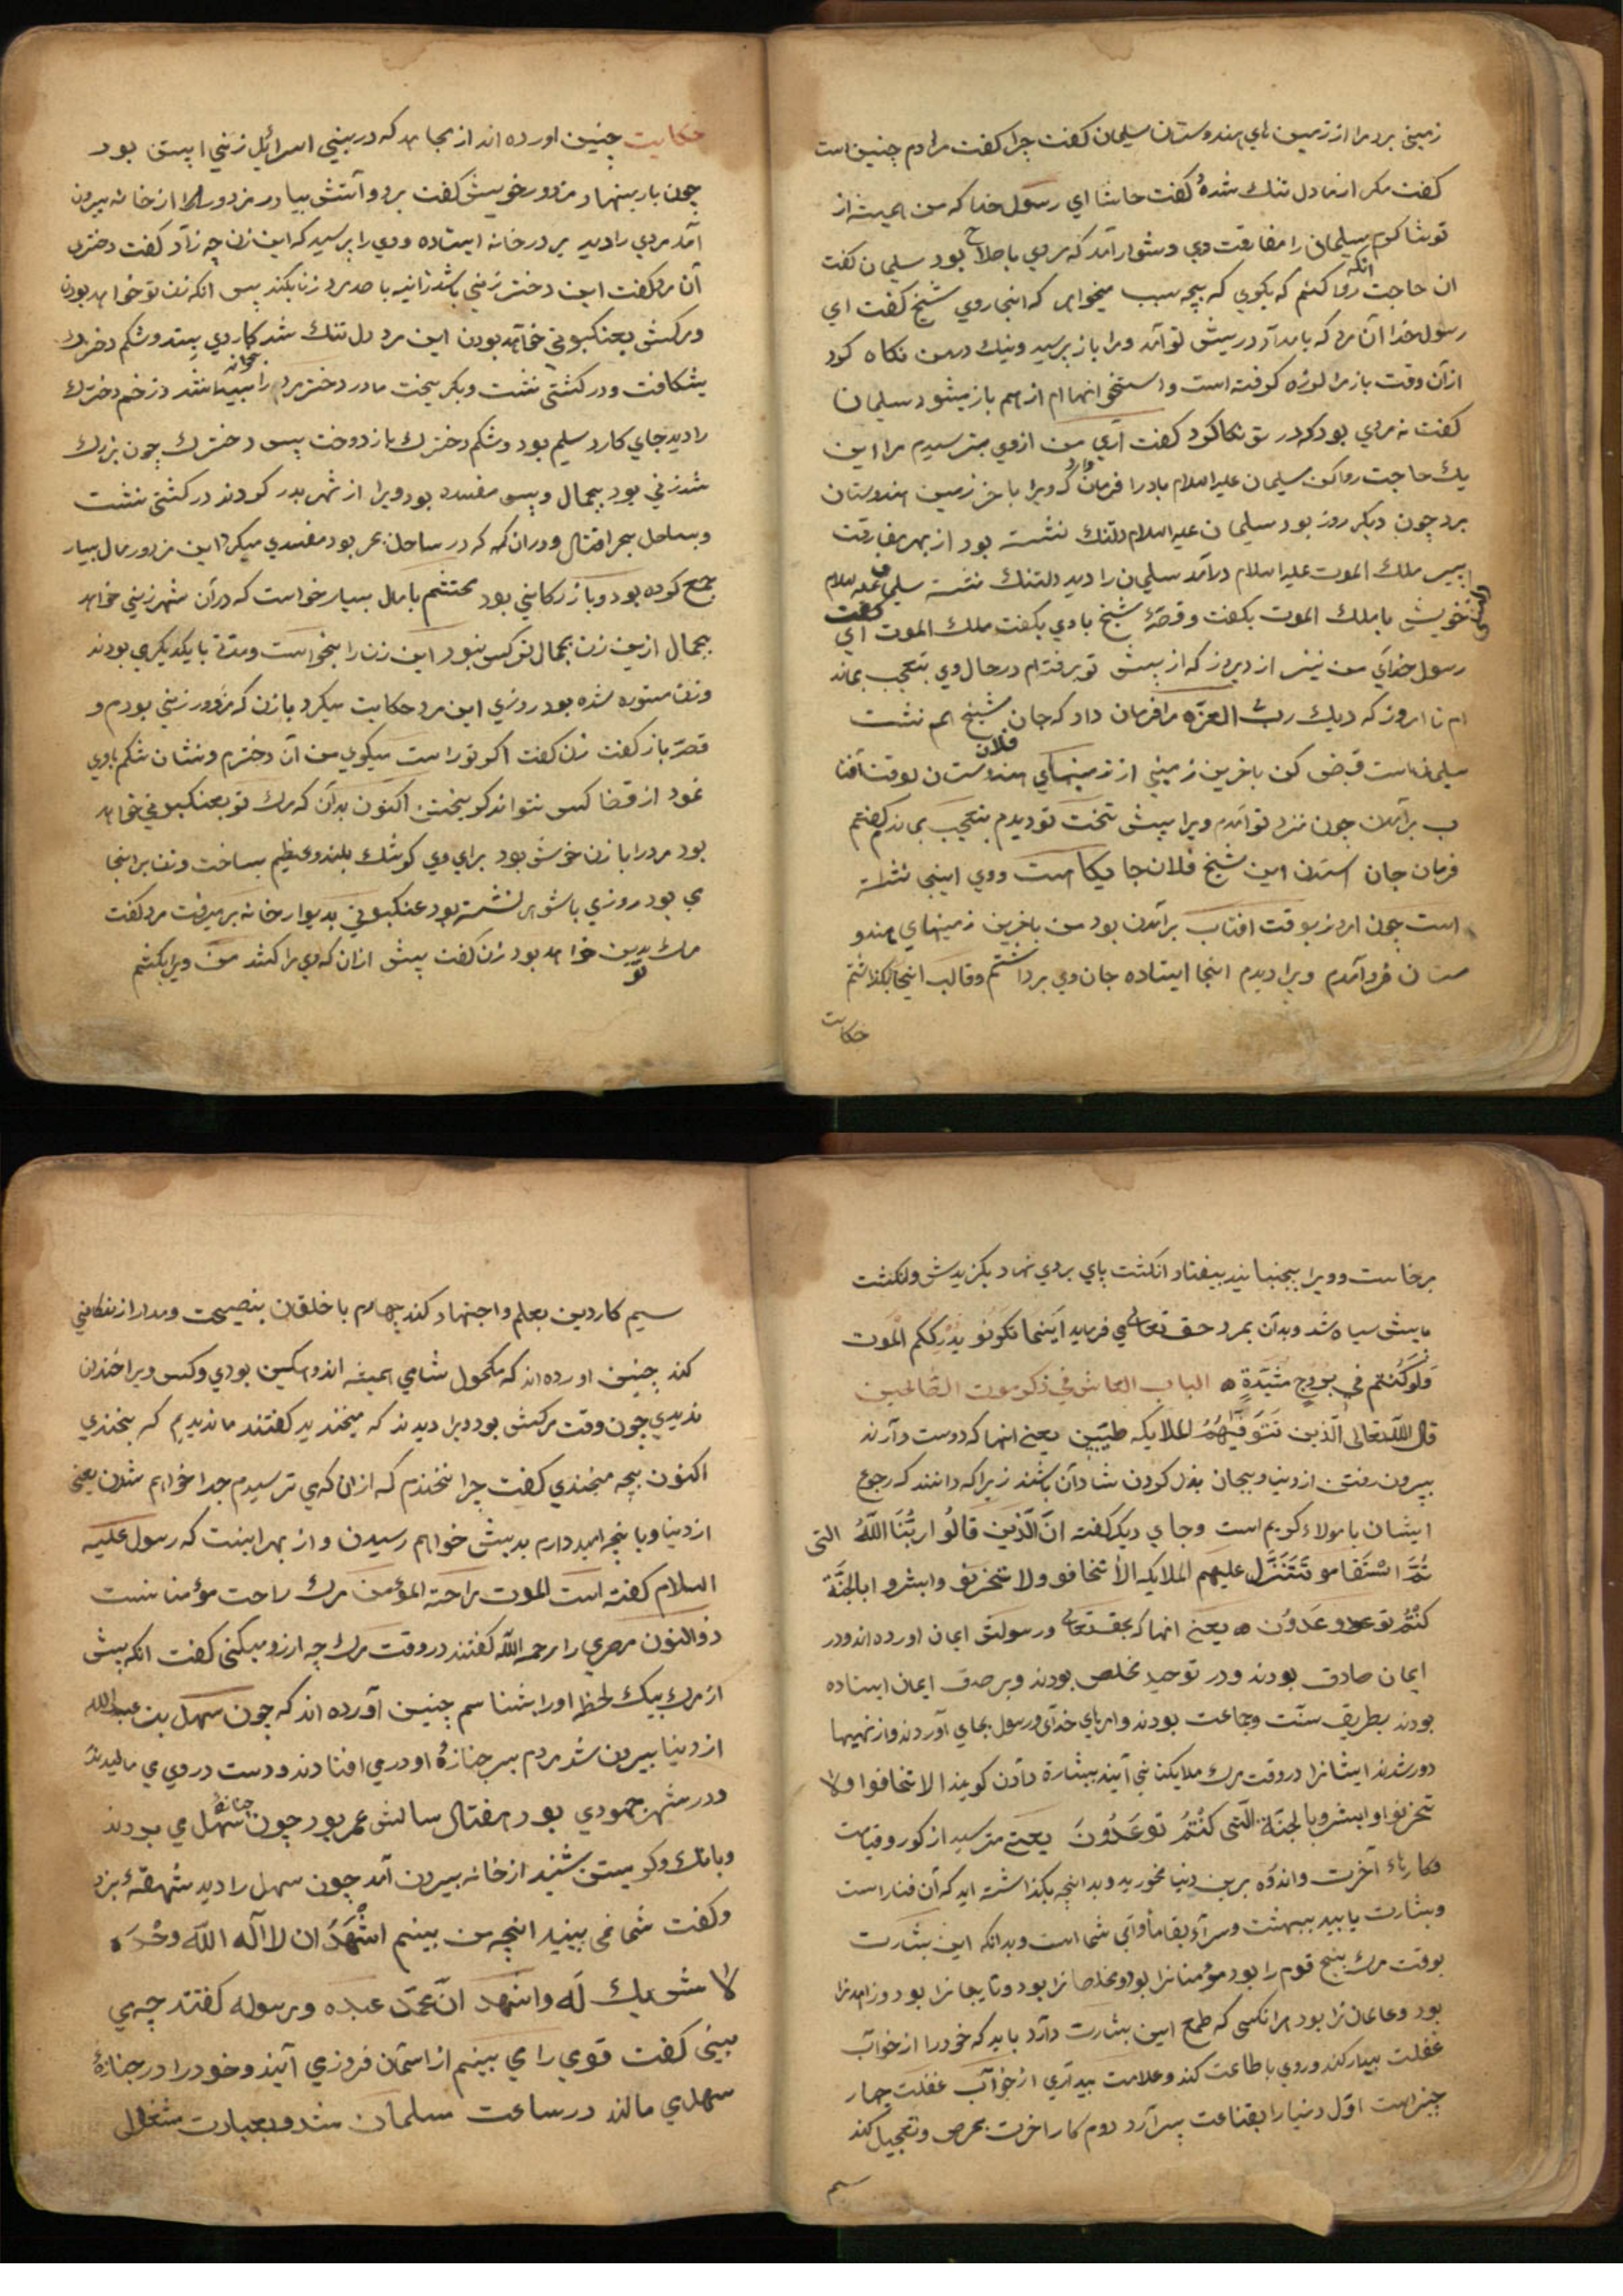 زمینی برد مرا از زمین هاي هندوستان سلیمان کفت چرا کفت مرادم چنین است
کفت مکر از ما دل تنك شدهٔ کفت حاشا اي رسول خدا که من همیشه از
تو شاکرم سلیمان را مفارقت وي دشوار آمد که مردي باصلاح بود سلیمان کفت
ان حاجت انکه روا کنم که بکوي که بچه سبب میخواهی که انجا روي شیخ کفت اي
رسول خدا آن مرد که بامداد در پیش تو آمد و مرا باز پرسید و نیك در من نکاه کرد
از آن وقت باز مرا لرزه کرفته است و استخوانهاام از هم باز میشود سلیمان
کفت نه مردي بود که در تو نکاه کرد کفت آري من ازوي میترسیدم مرا این
یك حاجت روا کن سلیمان علیه السلام باد را فرمان داد که ویرا باخر زمین هندوستان
برد چون دیکر روز بود سلیمان علیه السلام دلتنك نشسته بود از بهر مفارقت
پیر ملك الموت علیه السلام درآمد سلیمان را دید دلتنك نشسته سلیمان علیه السلام
خویش با ملك الموت بکفت و قصهٔ شیخ با وي بکفت ملك الموت کفت اي
رسول خداي من نیز از دیروز که از پیش تو برفته ام در حال وي بتعجب بمانده
ام تا امروز که دیك رب العزه مرا فرمان داد که جان شیخ هم نشست
سلیمانست قبض کن باخرین زمینی از زمینهاي فلان هندوستان بوقت آفتا
ب برآمدن چون نزد تو آمدم ویرا پیش تخت تو دیدم بتعجب بماندم کفتم
فرمان جان استدن این شیخ فلان جایکاهست ووي اینجی نشسته
است چون امروز بوقت افتاب برآمدن بود من باخرین زمینهاي هندو
ستان فرو آمدم ویرا دیدم اینجا ایستاده جان وي برداشتم و قالب اینجا بکذاشتم
حکایت
حکایت چنین آورده اند از مجاهد که در بنی اسرائل زنی ابستن بود
چون بار بنهاد مزدور خویش کفت برو و آتش بیار مزدور از خانه بیرون
آمد مردي را دید بر در خانه ایستاده ووي را پرسید که این زن چه زاد کفت دختري
آن مرد کفت این دختر زنی باشد زانیه با صد مرد زنا بکند پس انکه زن تو خواهد بودن
و مرکش بعنکبوتی خواهد بودن این مرد دل تنك شد کاردي بستد و شکم دخترك
بشکافت و در کشتی نشست و بکریخت مادر دختر را زخم دخترك
را دید جاي کارد سلیم بود و شکم دخترك باز دوخت پس دخترك چون بزرك
شد زنی بود بجمال و پس مفسد بود ویرا از شهر بدر کردند در کشتی نشست
و بساحل بحر افتاد و دران که در ساحل بحر بود مفسدي میکرد این مزدور مال بسیار
جمع کرده بود و بازرکانی بود محتشم با مال بسیار خواست که درآن شهر زنی خواهد
بجمال ازین زن بجمال تر کس نبود این زن را بخواست و مدتی با یکدیکر بودند
و زن مستوره شده بود روزي این مرد حکایت میکرد با زن که مزدور زنی بودم و
قصه باز کفت زن کفت اکر تو راست میکوي من آن دخترم و نشان شکم با وي
نمود از قضا کس نتواند کریختن اکنون بدان که مرك تو بعنکبوتی خواهد
بود مرد را با زن خوش بود براي وي کوشك بلند و عظیم بساخت و زن را اینجا
می بود روزي با شوهر نشسته بود عنکبوتی بدیوار خانه بر میرفت مرد کفت
مرك تو بدین خواهد بود زن کفت پیش ازان که وي مرا کشد من ویرا بکشم
برخاست وویرا بجنبانید بیفتاد انکشت پاي بر وي نهاد بکزیدش و انکشت
پایش سیاه شد وبدان بمرد حق تعالی می فرماید اَینَما تکونو یُدْرِککم الموت
وَلَوکُنتم فی بروج مُشَیّدَةٍ ه الباب العاشر فی ذکر موت الصالحین
قال الله تعالی الّذین تَتَوَفّیٰهُمُ الملایکه طیّبین یعنی انها که دوست دارند
بیرون رفتن از دنیا و بجان بذل کردن شادان باشند زیرا که دانند که رجوع
ایشان با مولاء کریم است و جاي دیکر کفته انّ الّذین قالُو ا ربُّنا اللّٰهُ التی
ثُمَّ استَقامو تَتَنَزَّل علیهم الملایکه الّا تخافو ولا تحزنو وابشرو ابالجنّة
کنتُم توعدون ه یعنی انها که بحق تعالی ورسولش ایمان اورده اند و در
ایمان صادق بودند و در توحید مخلص بودند و بر صدق ایمان ایستاده
بودند بطریق سنّت وجماعت بودند و امرهاي خداي و رسول بجاي آوردند و از نهیها
دور شدند ایشانرا در وقت مرك ملایکتانی آیند ببشارة دادن کویند الا تخافوا ولا
تحزنوا وابشرو بالجنّة الّتی کُنْتُمْ توعَدُونَ یعنی مترسید از کور و قیامت
وکارهاء آخرت و اندوه برین دنیا مخورید و بدانچه بکذاشته اید که آن فناراست
وبشارت یابید ببهشت و سراء بقا ماوآی شما است و بدانکه این بشارت
بوقت مرك پنج قوم را بود مؤمنانرا بود ومخلصانرا بود و تایبانرا بود و زاهدانرا
بود و عالمانرا بود هرانکسی که طمع این بشارت دارد باید که خود را از خواب
غفلت بیدار کند وروي با طاعت کند و علامت بیداري از خواب غفلت چهار
چیز است اوّل دنیا را بقناعت بسر آرد دوم کار اخرت بحرص و تعجیل کند
سیم
سیم کار دین بعلم و اجتهاد کند چهارم با خلقان بنصیحت و مدارا زندکانی
کند چنین اورده اند که مکحول شامي همیشه اندوهکین بودي و کس ویرا خندان
ندیدي چون وقت مرکش بود ویرا دیدند که میخندید کفتند ما ندیدیم که بخندي
اکنون بچه میخندي کفت چرا نخندم که ازان که مي ترسیدم جدا خواهم شدن یعنی
از دنیا و بانچه امید دارم بدیش خواهم رسیدن و از بهر اینست که رسول علیه
السلام کفته است الموت راحة المؤمن مرك راحت مؤمنانست
ذوالنون مصري را رحمه الله کفتند در وقت مرك چه ارزو میکنی کفت انکه پیش
از مرك بیك لحظه اورا بشناسم چنین آورده اند که چون سهل بن عبدالله
از دنیا بیرون شد مردم بسر جنازهٔ او درمی افتادند و دست در وي می مالیدند
و در شهر جهودي بود هفتاد سالش عمر بود چون جنازهٔ سهل می بردند
وبانك و کریستن شنید از خانه بیرون آمد چون سهل را دید شهقهٔ بزد
و کفت شما می بینید انچه من بینم اشْهَدُ ان لااله الّا الله وحْدَه
لا شریك لَه واشهد انّ محمّد عبده ورسوله کفتند چه مي
بینی کفت قومي را مي بینم از اسمان فرو مي آیند و خود را در جنازهٔ
سهل مي مالند در ساعت مسلمان شد و بعبادت مشغول